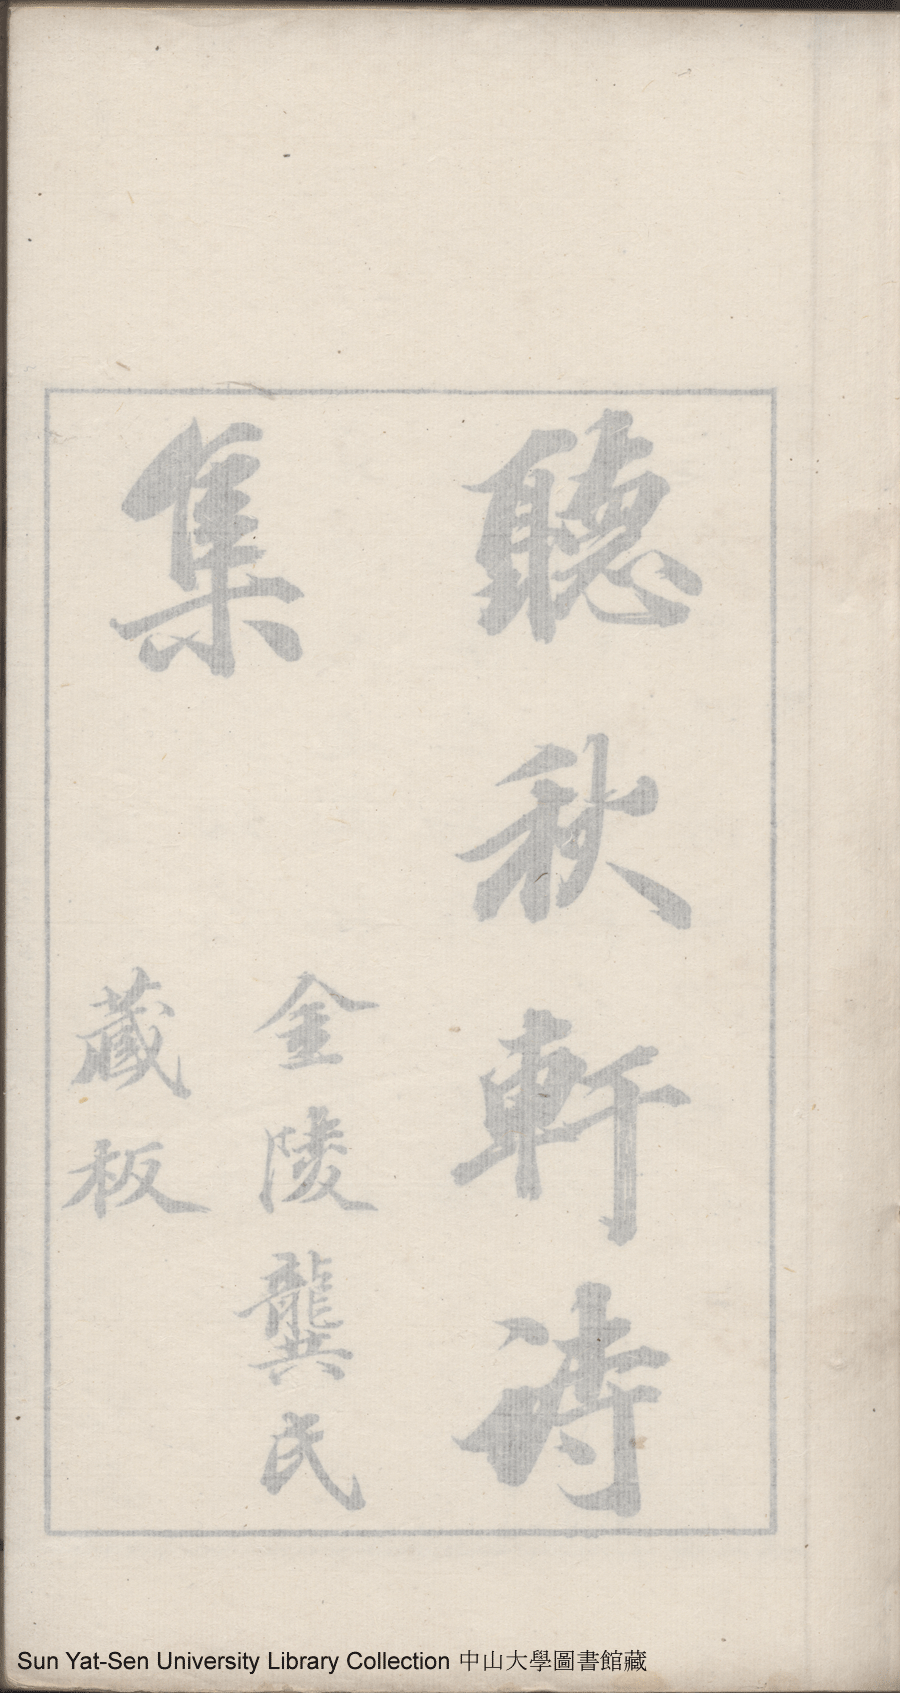 聽秋軒詩
集
金陵龔氏
藏板
Sun Yat-Sen University Library Collection 中山大學圖書館藏